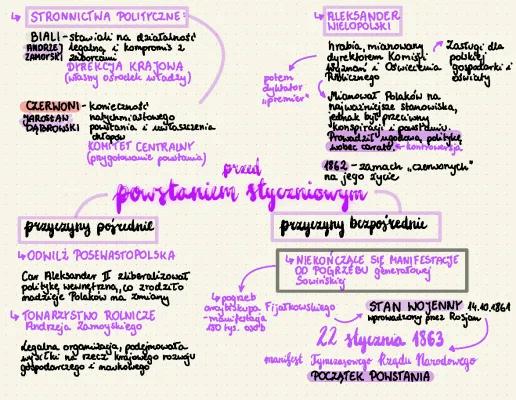 ↳ STRONNICTWA POLITYCZNE:
BIALI - stawiali na działalność
ANDRZEJ legalną i kompromis z
ZAMOYSKI zaborcami
DYREKCJA KRAJOWA
(własny ośrodek władzy)
CZERWONI - konieczność
JAROSŁAW natychmiastowego
DĄBROWSKI powstania i uwłaszczenia
chłopów
KOMITET CENTRALNY
(przygotowanie powstania)
↳ ALEKSANDER
WIELOPOLSKI
hrabia, mianowany
dyrektorem Komisji
Wyznań i Oświecenia
Publicznego
Zasługi dla
polskiej
gospodarki i
oświaty
potem
dyktator
"premier"
Mianował Polaków na
najważniejsze stanowiska,
jednak był przeciwny
konspiracji i powstaniu.
Prowadził ugodową politykę
wobec caratu. kontrowersja
1862 - zamach "czerwonych"
na jego życie
przed
powstaniem styczniowym
przyczyny pośrednie
↳ ODWILŻ POSEWASTOPOLSKA
Car Aleksander II zliberalizował
politykę wewnętrzną, co zrodziło
nadzieje Polaków na zmiany
↳ TOWARZYSTWO ROLNICZE
Andrzeja Zamoyskiego
Legalna organizacja, podejmowała
wysiłki na rzecz krajowego rozwoju
gospodarczego i naukowego
przyczyny bezpośrednie
↳ NIEKOŃCZĄCE SIĘ MANIFESTACJE
OD POGRZEBU generałowej
Sowińskiej
↳ pogrzeb
arcybiskupa Fijałkowskiego
- manifestacja
150 tys. osób
STAN WOJENNY 14.10.1861
wprowadzony przez Rosjan
22 stycznia 1863
manifest Tymczasowego Rządu Narodowego
POCZĄTEK POWSTANIA